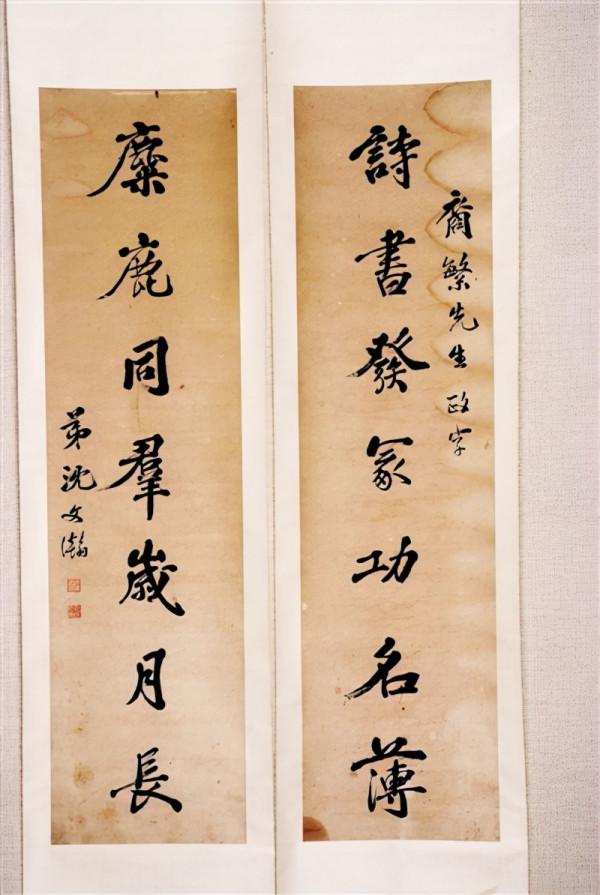 裔繁先生政字
詩書發冢功名薄
麋鹿同羣歲月長
弟沈文瀚